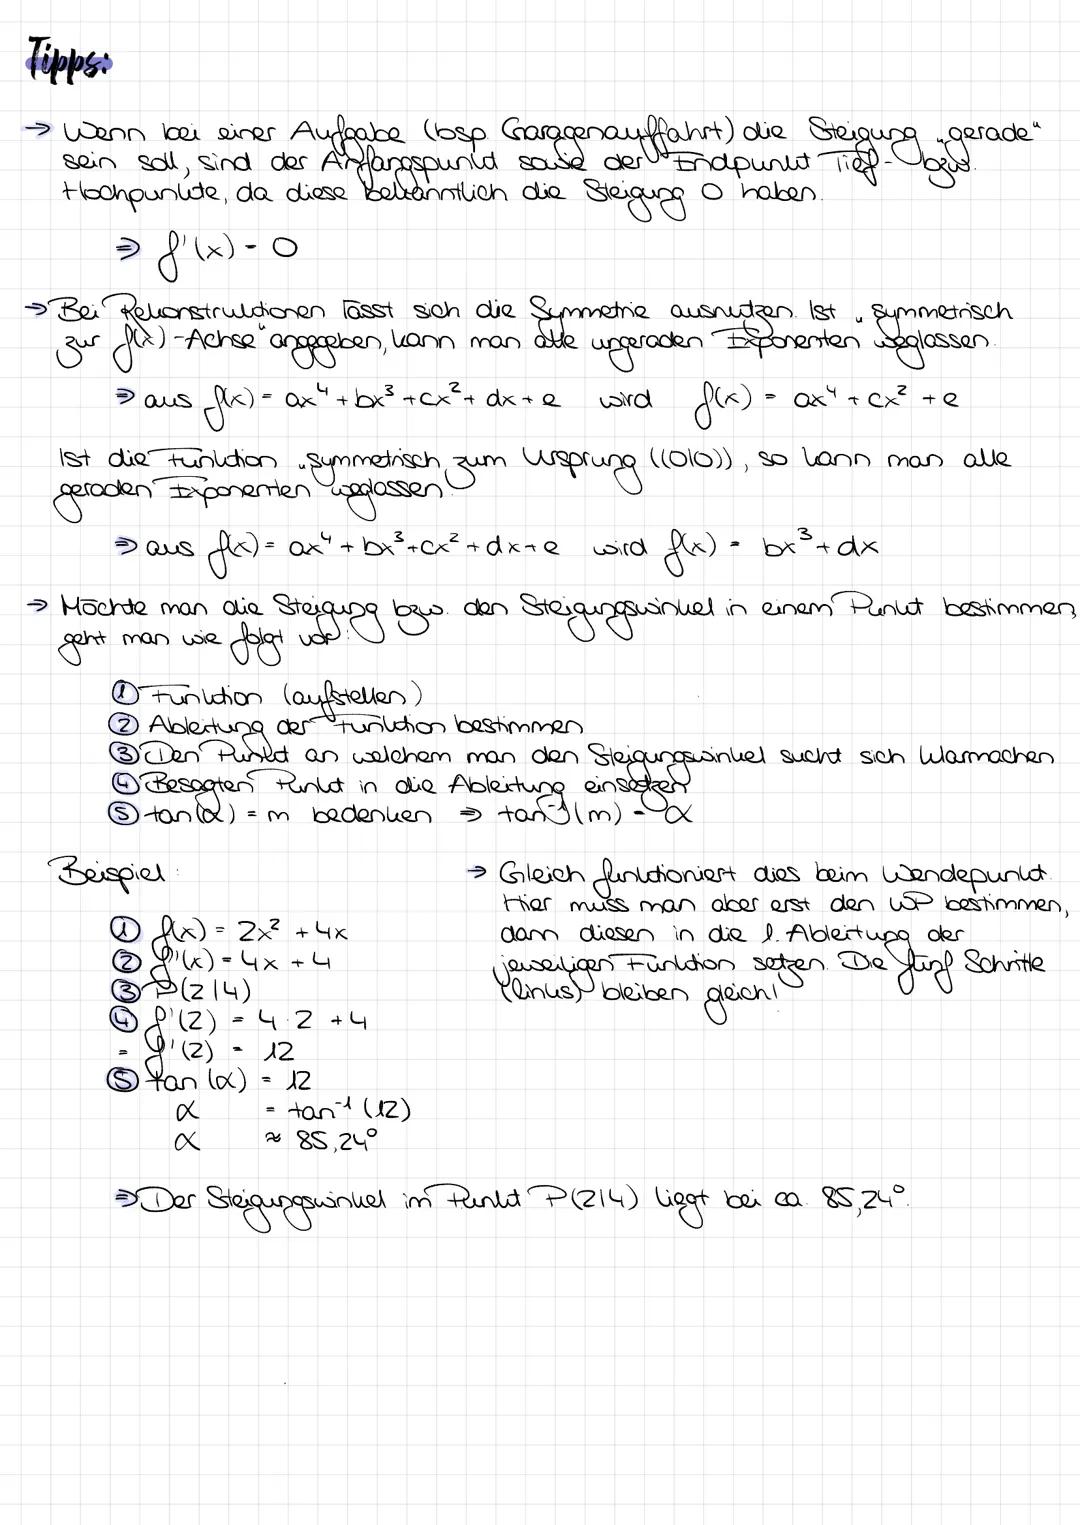 Tipps:
→ Wenn bei einer Aufgabe (bsp. Garagenauffahrt) die Steigung „gerade“
sein soll, sind der Anfangspunkt sowie der Endpunkt Tief- bzw.
Hochpunkte, da diese bekanntlich die Steigung 0 haben.
⇒ f'(x) = 0
→ Bei Rekonstruktionen lässt sich die Symmetrie ausnutzen. Ist „symmetrisch
zur f(x)-Achse“ angegeben, kann man alle ungeraden Exponenten weglassen.
⇒ aus f(x) = ax⁴ + bx³ + cx² + dx + e wird f(x) = ax⁴ + cx² + e
Ist die Funktion „symmetrisch zum Ursprung ((0|0)), so kann man alle
geraden Exponenten weglassen.
⇒ aus f(x) = ax⁴ + bx³ + cx² + dx + e wird f(x) = bx³ + dx
→ Möchte man die Steigung bzw. den Steigungswinkel in einem Punkt bestimmen,
geht man wie folgt vor:
① Funktion (aufstellen)
② Ableitung der Funktion bestimmen
③ Den Punkt an welchem man den Steigungswinkel sucht sich klarmachen
④ Besagten Punkt in die Ableitung einsetzen
⑤ tan(α) = m bedenken ⇒ tan⁻¹(m) = α
Beispiel:
① f(x) = 2x² + 4x
② f'(x) = 4x + 4
③ P(2|4)
④ f'(2) = 4·2 + 4
= f'(2) = 12
⑤ tan(α) = 12
α = tan⁻¹(12)
α ≈ 85,24°
→ Gleich funktioniert dies beim Wendepunkt.
Hier muss man aber erst den WP bestimmen,
dann diesen in die 1. Ableitung der
jeweiligen Funktion setzen. Die fünf Schritte
(links) bleiben gleich!
⇒ Der Steigungswinkel im Punkt P(2|4) liegt bei ca. 85,24°.